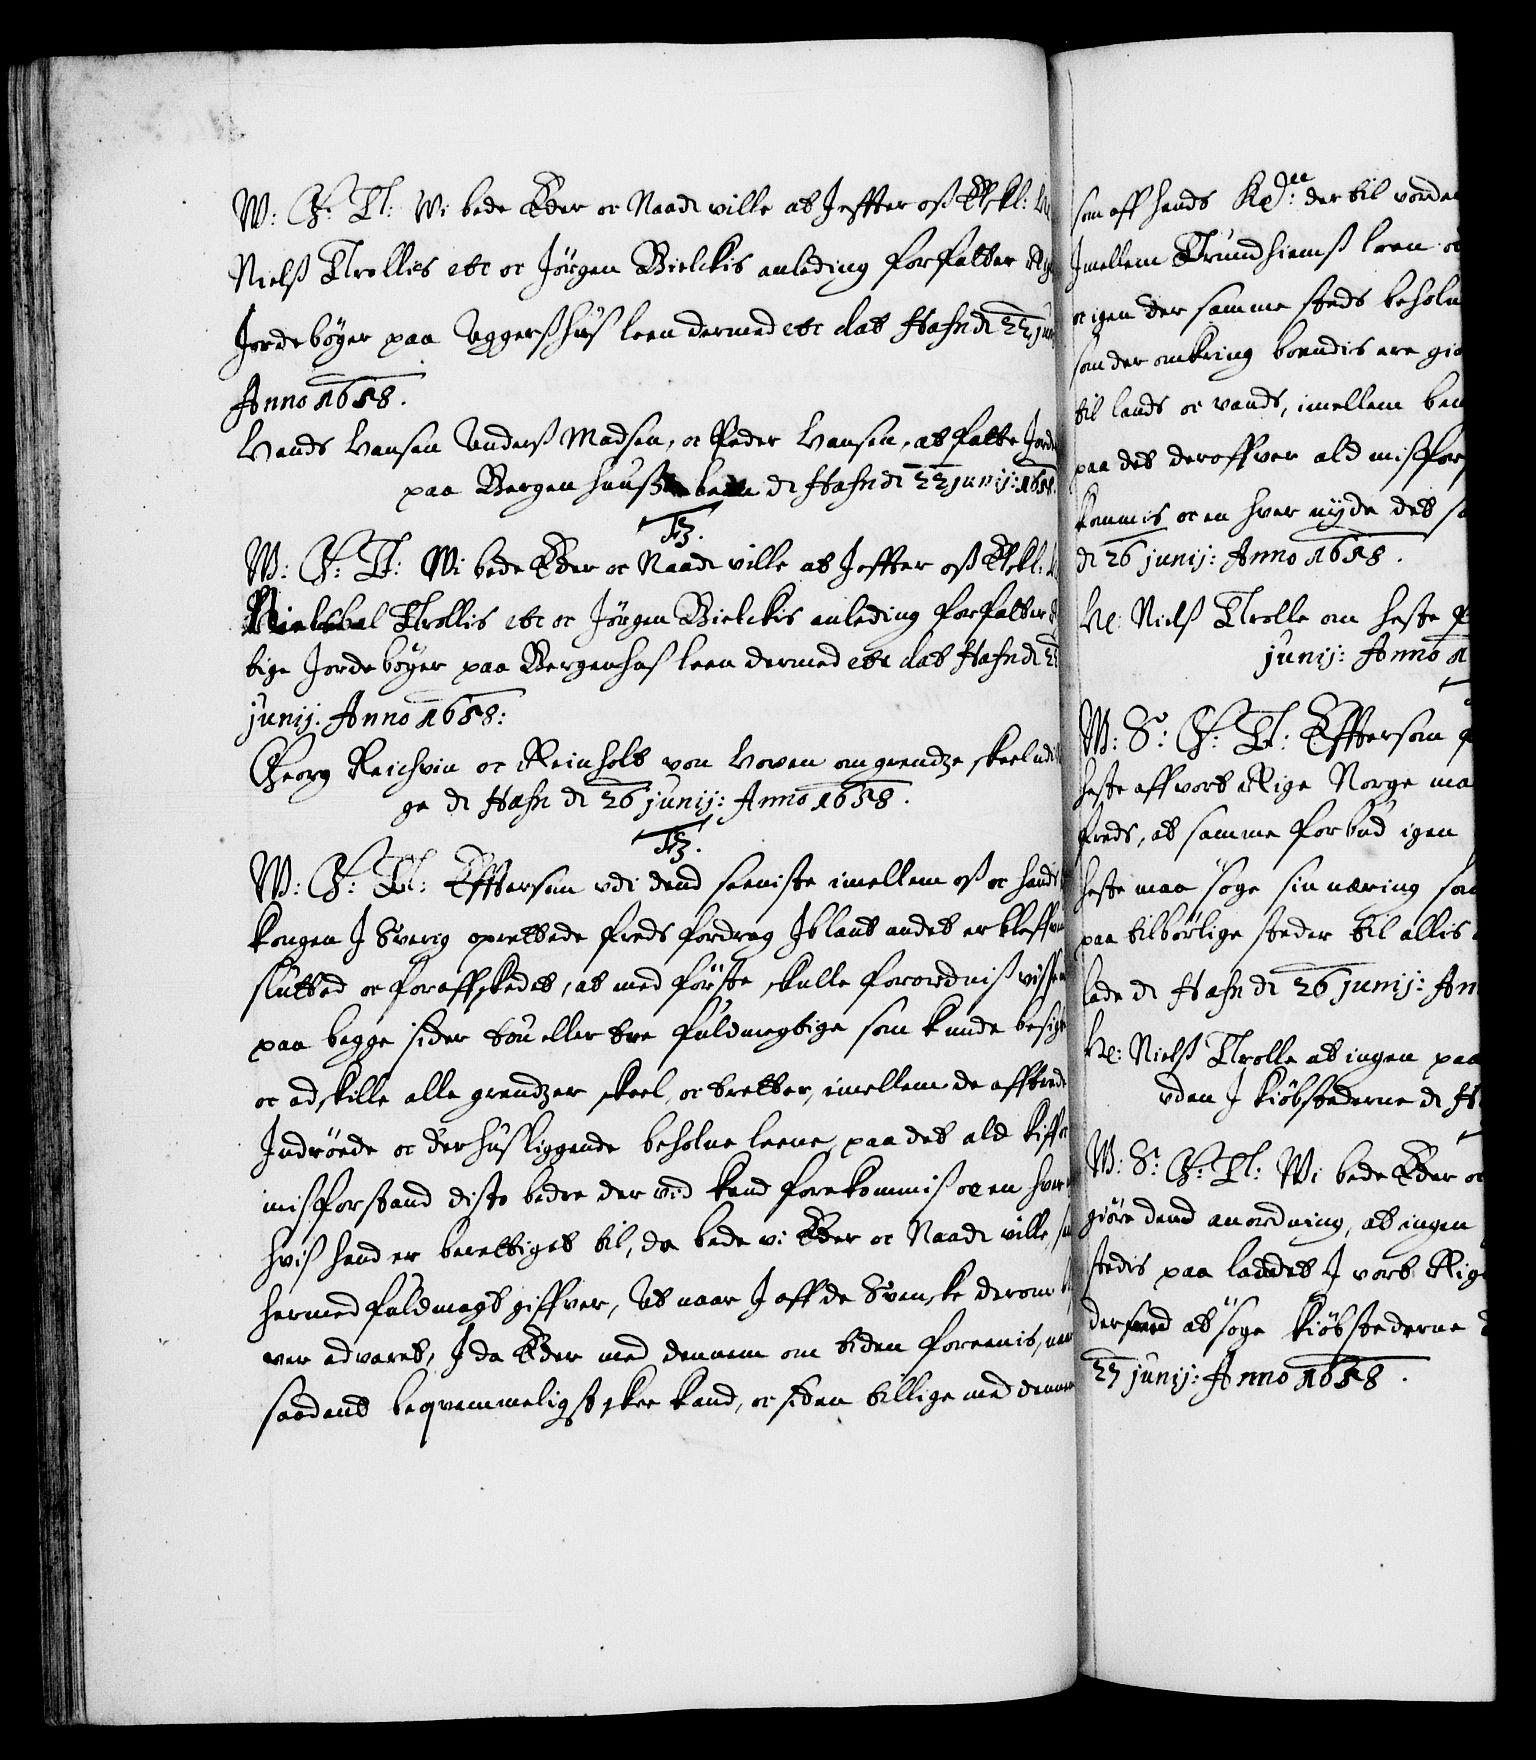 W: G: T: Wi bede Eder oc Naadi ville at I effter oß Elskl:
Nielß Trollis etc oc Jörgen Bielckis anleding forfatter
Jordebögger paa Aggerßhus leen dermed etc dat Hafn di 22
Anno 1658.
Hands Hansen Anderß Madsen, oc Peder Hansen, at fatte Jorde
paa Bergenhuuß leen di Hafn di 22 junij: 1658.
F3.
W: G: T: Wi bede Eder oc Naadi ville at I effter oß Elskl:
Trollis etc oc Jörgen Bielckis anleding forfatter
tige Jordebögger paa Bergenhus leen dermed etc dat Hafn di
junij. Anno 1658:
Georg Reichvin oc Reinholt von Hoven om grendze skeel udi
ge di Hafn di 26 junij: Anno 1658.
F3.
W: G: T: Efftersom udi dend seeniste imellem oß oc hands
kongen I Sverig oprettede freds fordrag Iblant andet er bleffven
slutted oc foraffskedet, at med förste skulle forordniß visse
paa begge sider tou eller tre fuldmegtige som kunde besige
oc adskille alle grendzer skeel, oc tretter, imellem de afftrede
Indröede oc derhuß liggende beholne leene, paa det ald kiff oc
misforstand disto bedre der ved kand forekommiß oc en hver
hviß hand er berettiget til, da bede vi Eder oc Naadi ville,
hermed fuldmagt giffver, At naar I aff de Svenske derom
ver advaret, I da Eder med dennem om tiden foreenis, naar
saadant beqvemmeligst skee kand, oc siden tillige med dennem
som aff hands Kge. der til vorder
Imellem Trundhiemß leen oc
oc igen der samme steds beholne
som der omkring boendis ere
til lands oc vands, imellem
paa det deroffver ald misfor
kommis oc en hver nyde det
di 26 junij: Anno 1658.
He: Nielß Trolle om heste
junij: Anno
W: S: G: T: Efftersom
heste aff vort Rige Norge maa
freds, at samme forbud igen
heste maa söge sin næring
paa tilbörlige steder til allis
lede di Hafn di 26 junij: Anno
He: Nielß Trolle at ingen paa
uden I kiöbstederne di
W: S: G: T: Wi bede Eder oc
giöre dend anordning, at ingen
stedis paa landet I vort Rige
at söge kiöbstederne
27 junij: Anno 1658.